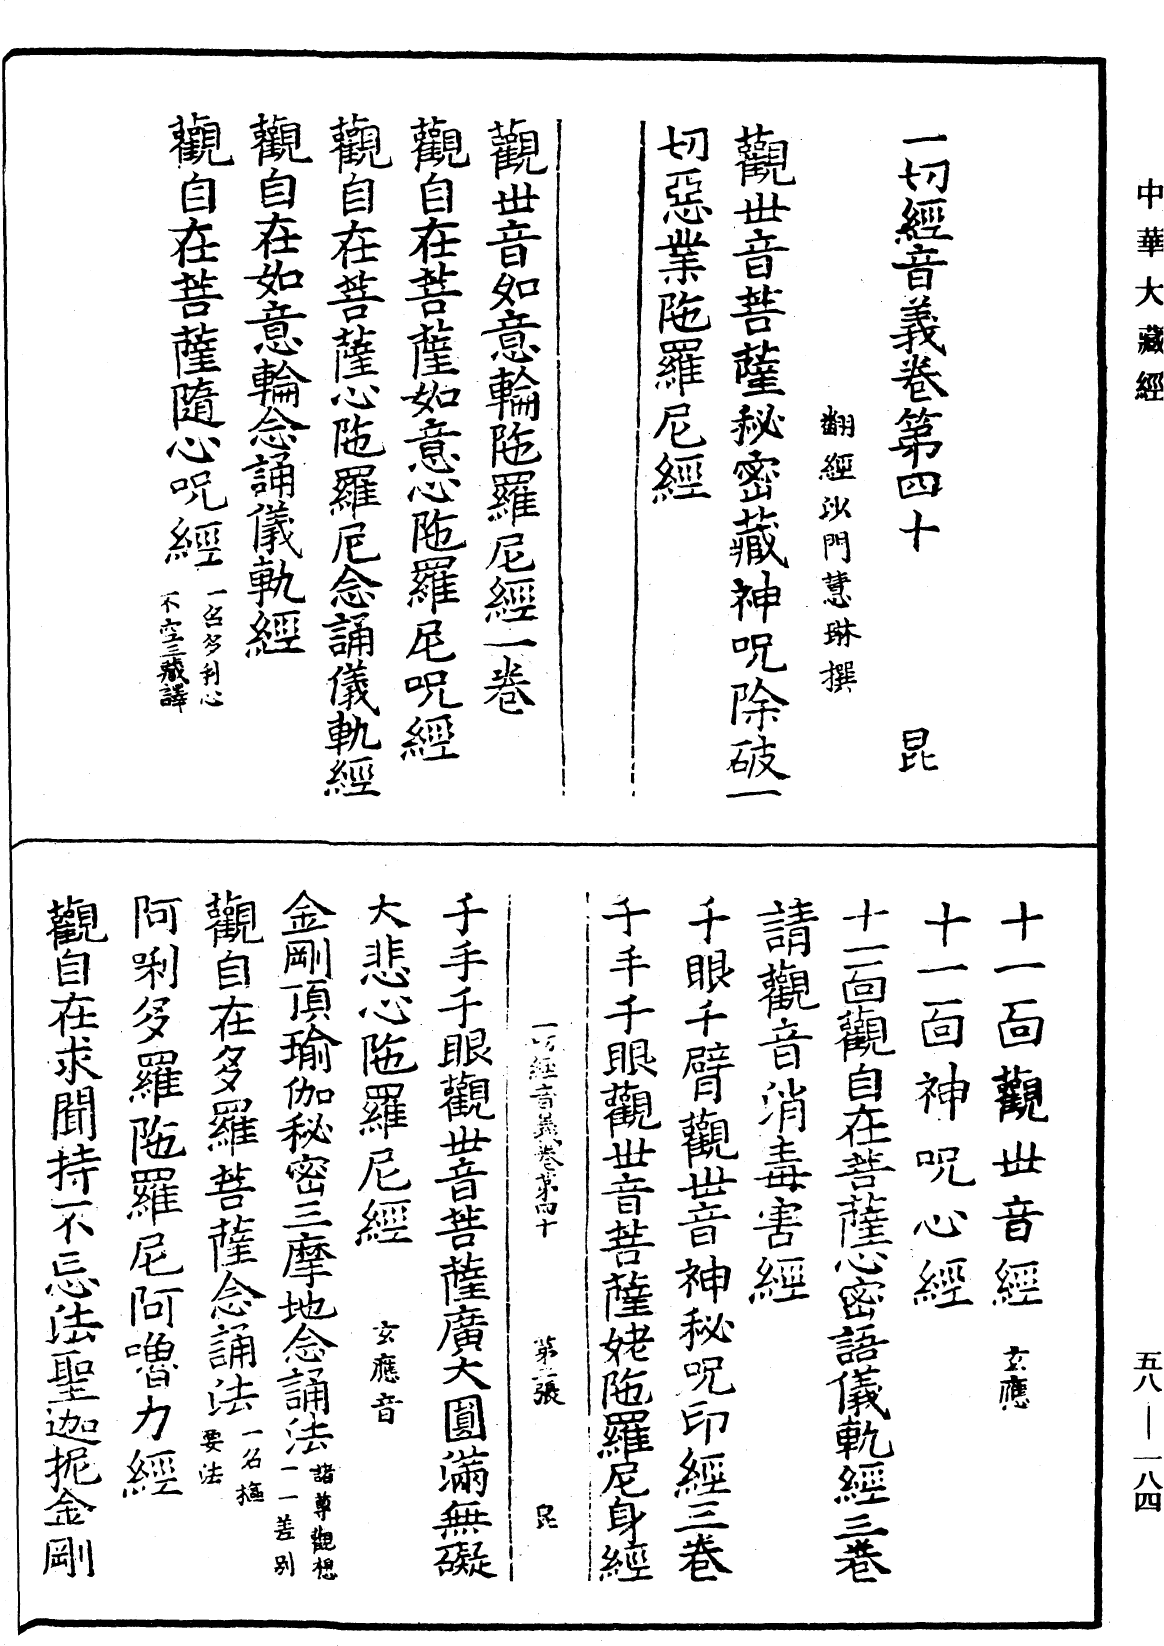 中華大藏經
一切經音義卷第四十　昆
翻經沙門慧琳撰
觀世音菩薩秘密藏神呪除破一
切惡業陁羅尼經
觀世音如意輪陁羅尼經一卷
觀自在菩薩如意心陁羅尼呪經
觀自在菩薩心陁羅尼念誦儀軌經
觀自在如意輪念誦儀軌經
觀自在菩薩隨心呪經　一名多利心
不空三藏譯
十一面觀世音經　玄應
十一面神呪心經
十一面觀自在菩薩心密語儀軌經三卷
請觀音消毒害經
千眼千臂觀世音神秘呪印經三卷
千手千眼觀世音菩薩姥陁羅尼身經
一切經音義卷第四十　第二張　昆
千手千眼觀世音菩薩廣大圓滿無礙
大悲心陁羅尼經　玄應音
金剛頂瑜伽秘密三摩地念誦法　諸尊觀想
一一差別
觀自在多羅菩薩念誦法　一名摳
要法
阿唎多羅陁羅尼阿嚕力經
觀自在求聞持不忘法聖迦抳金剛
五八—一八四